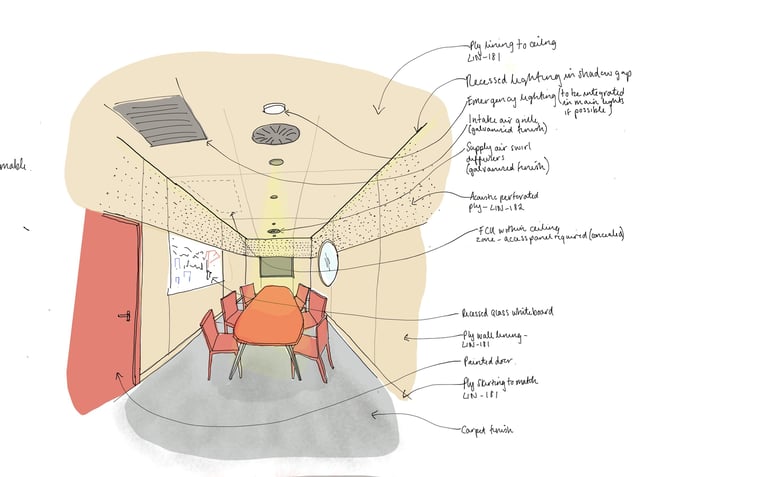 Ply lining to ceiling
LIN-181
Recessed lighting in shadow gap
Emergency lighting (to be integrated
in main lights
if possible)
Intake air grille
(galvanised finish)
Supply air swirl
diffusers
(galvanised finish)
Acoustic perforated
ply - LIN-182
FCU within ceiling
zone - access panel required (concealed)
Recessed glass whiteboard
Ply wall lining -
LIN-181
Painted door
Ply skirting to match
LIN-181
Carpet finish